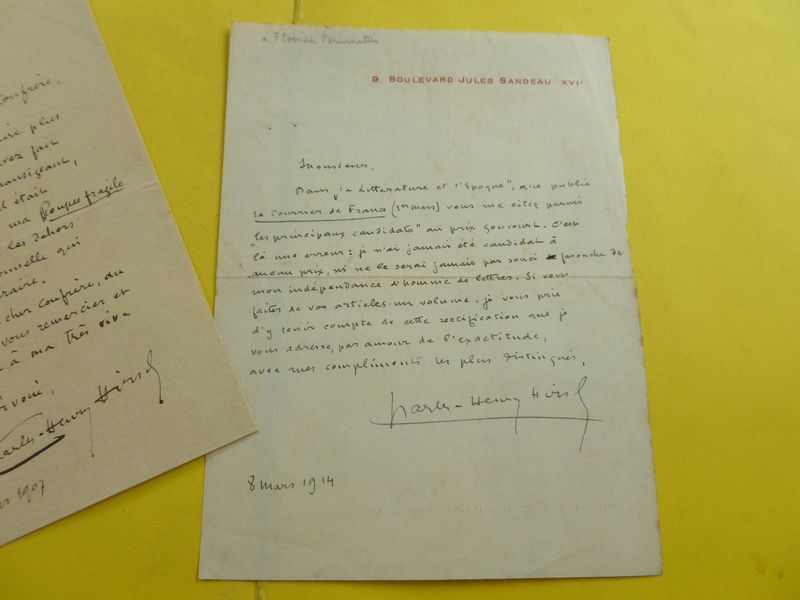 onfrère,
plus
fait
transigeant,
était
ma Poupée fragile
les dehors
onnelle qui
raire.
cher confrère, du
vous remercier et
à ma très vive
évoué,
Charles-Henry Hirsch
1907
à Florian Parmentier
9, BOULEVARD JULES SANDEAU XVIe
Monsieur,
Dans "la Littérature et l'Epoque", que publie
le Courrier de France (1er mars) vous me citez parmi
"les principaux candidats" au prix Goncourt. C'est
là une erreur : je n'ai jamais été candidat à
aucun prix, ni ne le serai jamais par souci farouche de
mon indépendance d'homme de lettres. Si vous
faites de vos articles un volume, je vous prie
d'y tenir compte de cette rectification que je
vous adresse, par amour de l'exactitude,
avec mes compliments les plus distingués,
Charles-Henry Hirsch
8 mars 1914